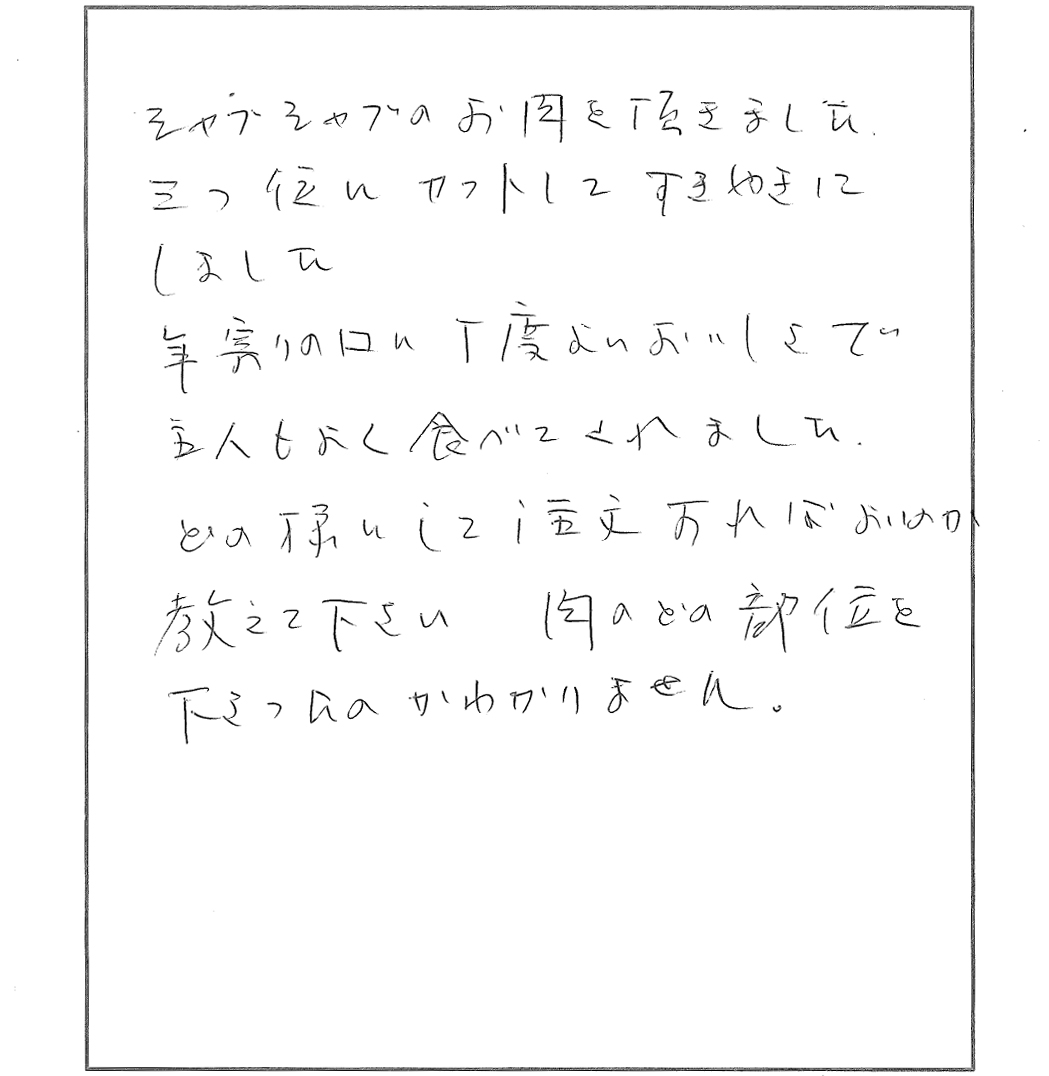 シャブシャブのお肉を頂きました.
三つ位にカットしてすきやきに
しました
年寄りの口に丁度よいおいしさで
主人もよく食べてくれました.
どの様にして注文すればよいのか
教えて下さい　肉のどの部位を
下さったのかわかりません。